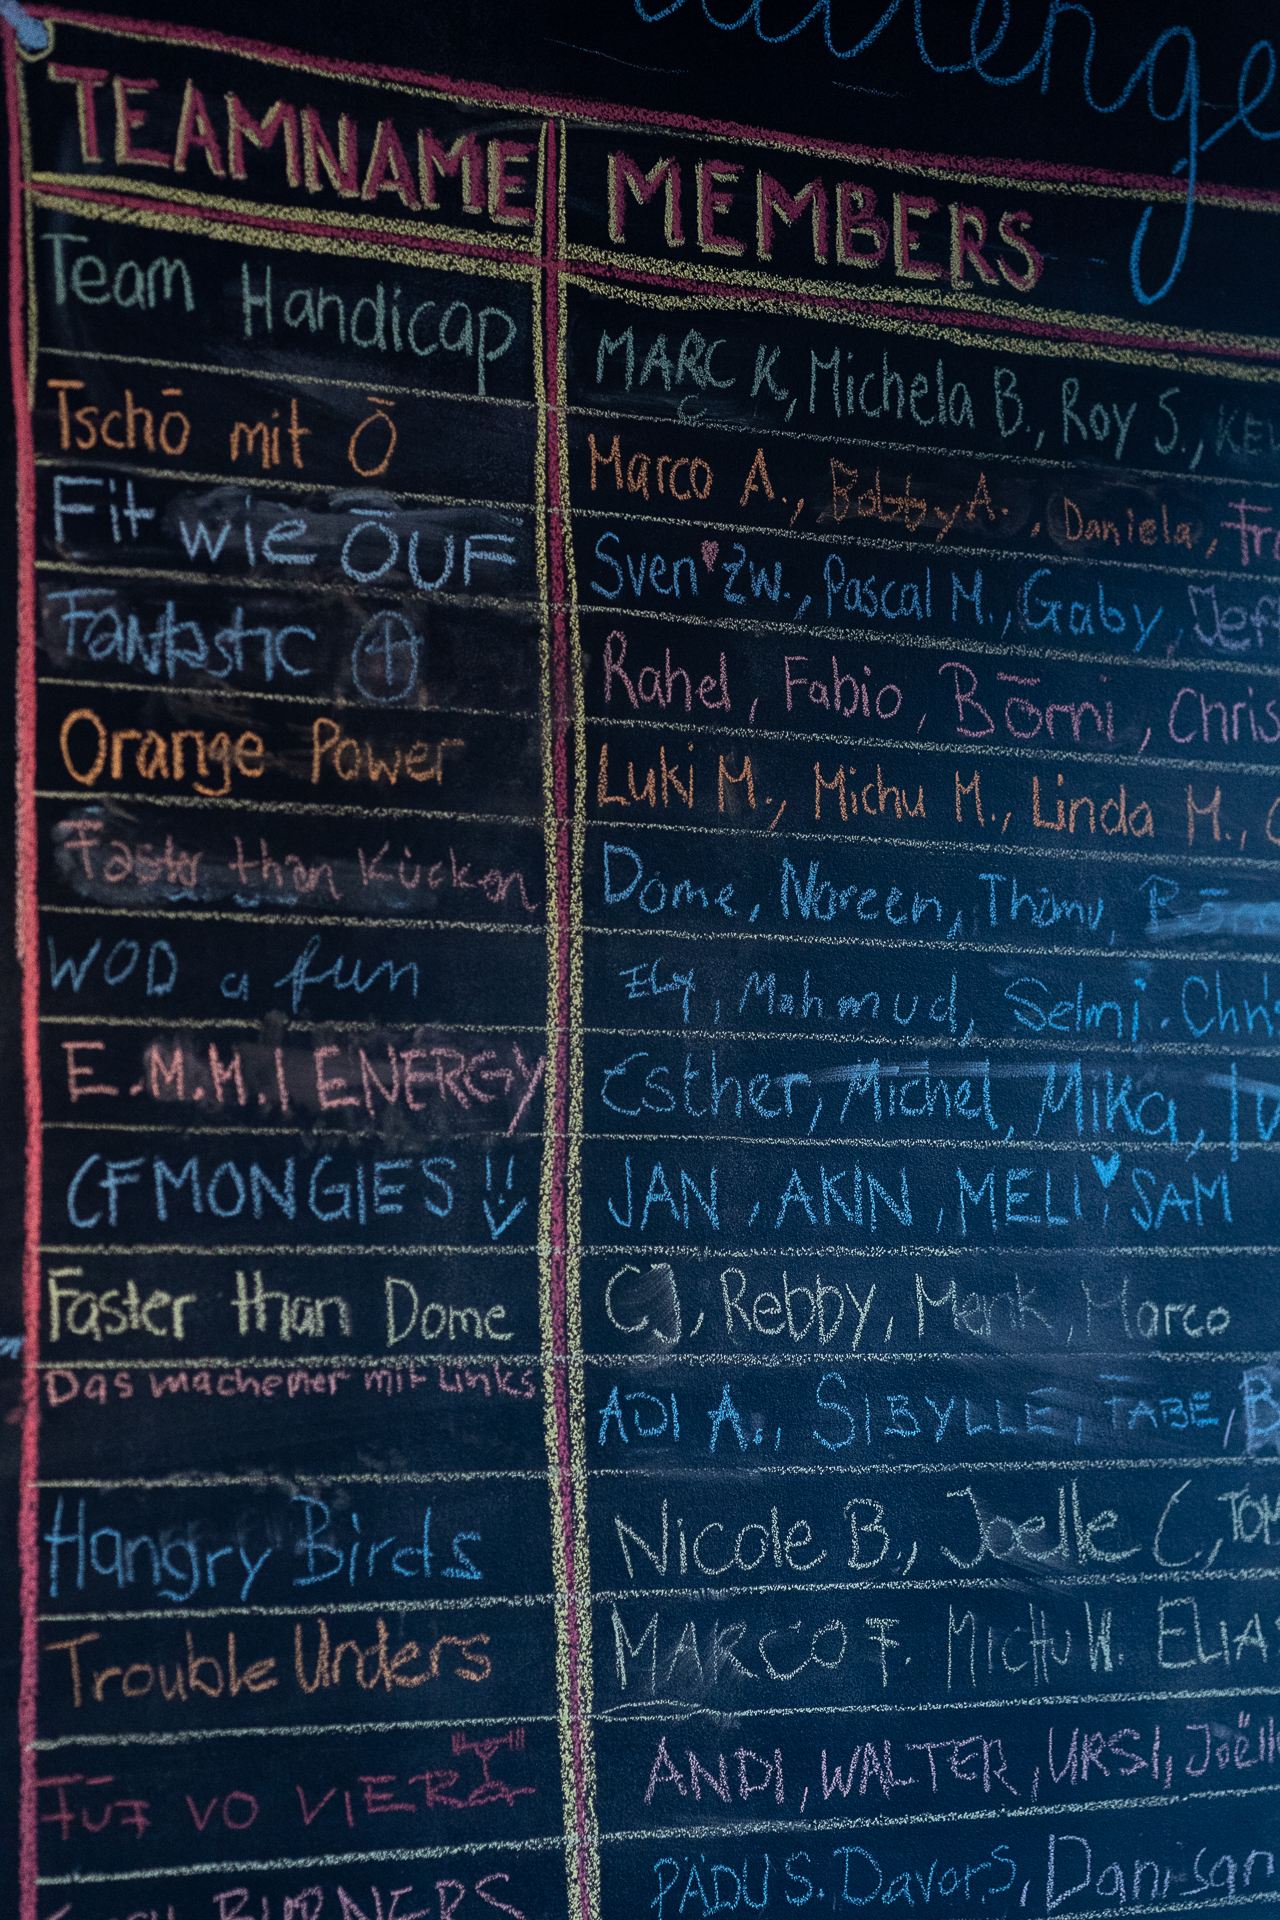 TEAMNAME MEMBERS
Team Handicap MARC K, Michela B., Roy S.,
Tschō mit Ō Marco A., Bobby A., Daniela,
Fit wie ŌUF Sven♥Zw., Pascal M., Gaby,
Fantastic 4 Rahel, Fabio, Bōrni, Chris
Orange Power Luki M., Michu M., Linda M.,
Faster than Kücken Dome, Noreen, Thömu,
WOD a fun Ely, Mahmud, Selmi. Chris
E.M.M.I ENERGY Esther, Michel, Mika,
CF MONGIES !! JAN, AKIN, MELI♥SAM
Faster than Dome CJ, Rebby, Menk, Marco
Das machemer mit links ADI A., SIBYLLE, TABE,
Hangry Birds Nicole B., Joelle C.,
Trouble Unders MARCO F. MICHU W. ELIAS
FÜF VO VIER ANDI, WALTER, URSI,
BURNERS PÄDU S. Davor S,